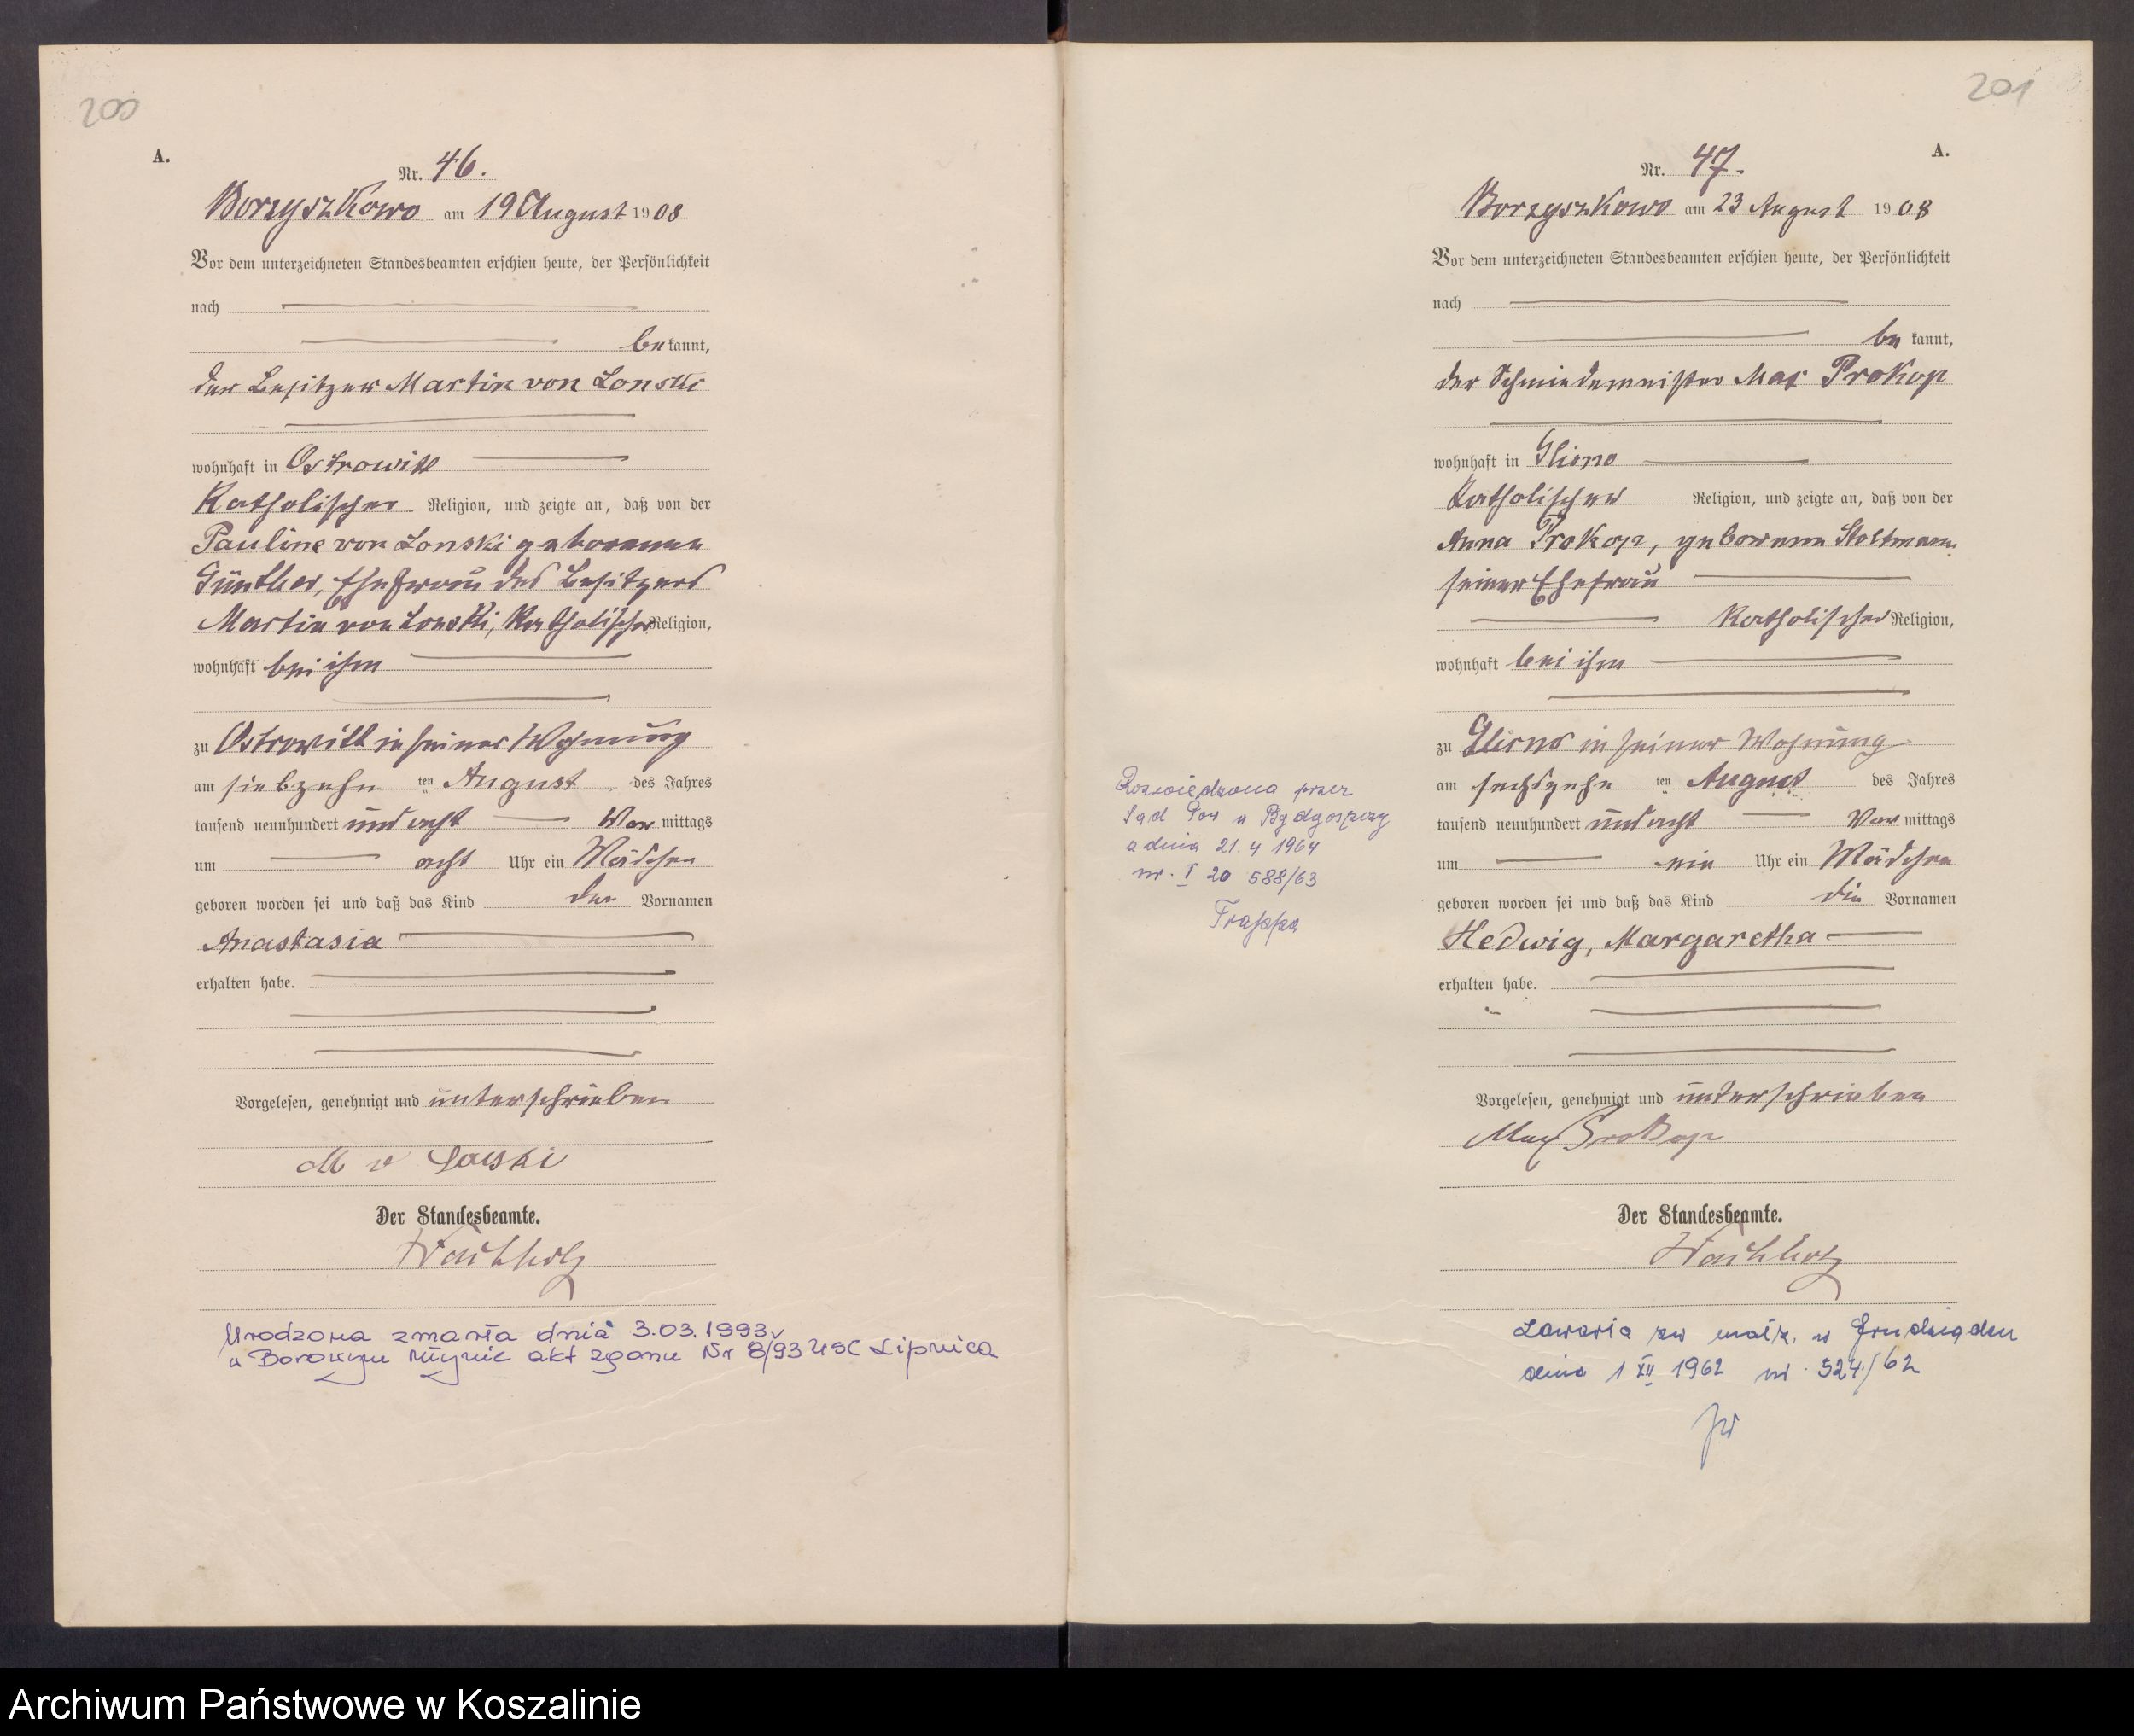 200
A.
Nr. 46.
Borzyszkowo am 19 August 1908
Vor dem unterzeichneten Standesbeamten erschien heute, der Persönlichkeit
nach
be kannt,
der Besitzer Martin von Lonski
wohnhaft in Ostrowitt
Katholischer Religion, und zeigte an, daß von der
Pauline von Lonski geborenen
Günther, Ehefrau des Besitzers
Martin von Lonski, Katholischer Religion,
wohnhaft bei ihm
zu Ostrowitt in seiner Wohnung
am siebzehn ten August des Jahres
tausend neunhundert und acht Vor mittags
um acht Uhr ein Mädchen
geboren worden sei und daß das Kind den Vornamen
Anastasia
erhalten habe.
Vorgelesen, genehmigt und unterschrieben
M v Lonski
Der Standesbeamte.
Urodzona zmarła dnia 3.03.1993r
w Borowym Młynie akt zgonu Nr 8/93 USC Lipnica
201
A.
Nr. 47.
Borzyszkowo am 23 August 1908
Vor dem unterzeichneten Standesbeamten erschien heute, der Persönlichkeit
nach
be kannt,
der Schmiedemeister Max Prokop
wohnhaft in Glisno
Katholischer Religion, und zeigte an, daß von der
Anna Prokop, geborenen Stoltmann
seiner Ehefrau
Katholischer Religion,
wohnhaft bei ihm
zu Glisno in seiner Wohnung
am sechszehn ten August des Jahres
tausend neunhundert und acht Vor mittags
um ein Uhr ein Mädchen
geboren worden sei und daß das Kind die Vornamen
Hedwig, Margaretha
erhalten habe.
Vorgelesen, genehmigt und unterschrieben
Max Prokop
Der Standesbeamte.
Rozwiedziona przez
Sąd Pow w Bydgoszczy
z dnia 21.4 1964
nr. I 20 588/63
Zawarła zw małż. w Grudziądzu
dnia 1 XII 1962 nr. 524/62
Archiwum Państwowe w Koszalinie